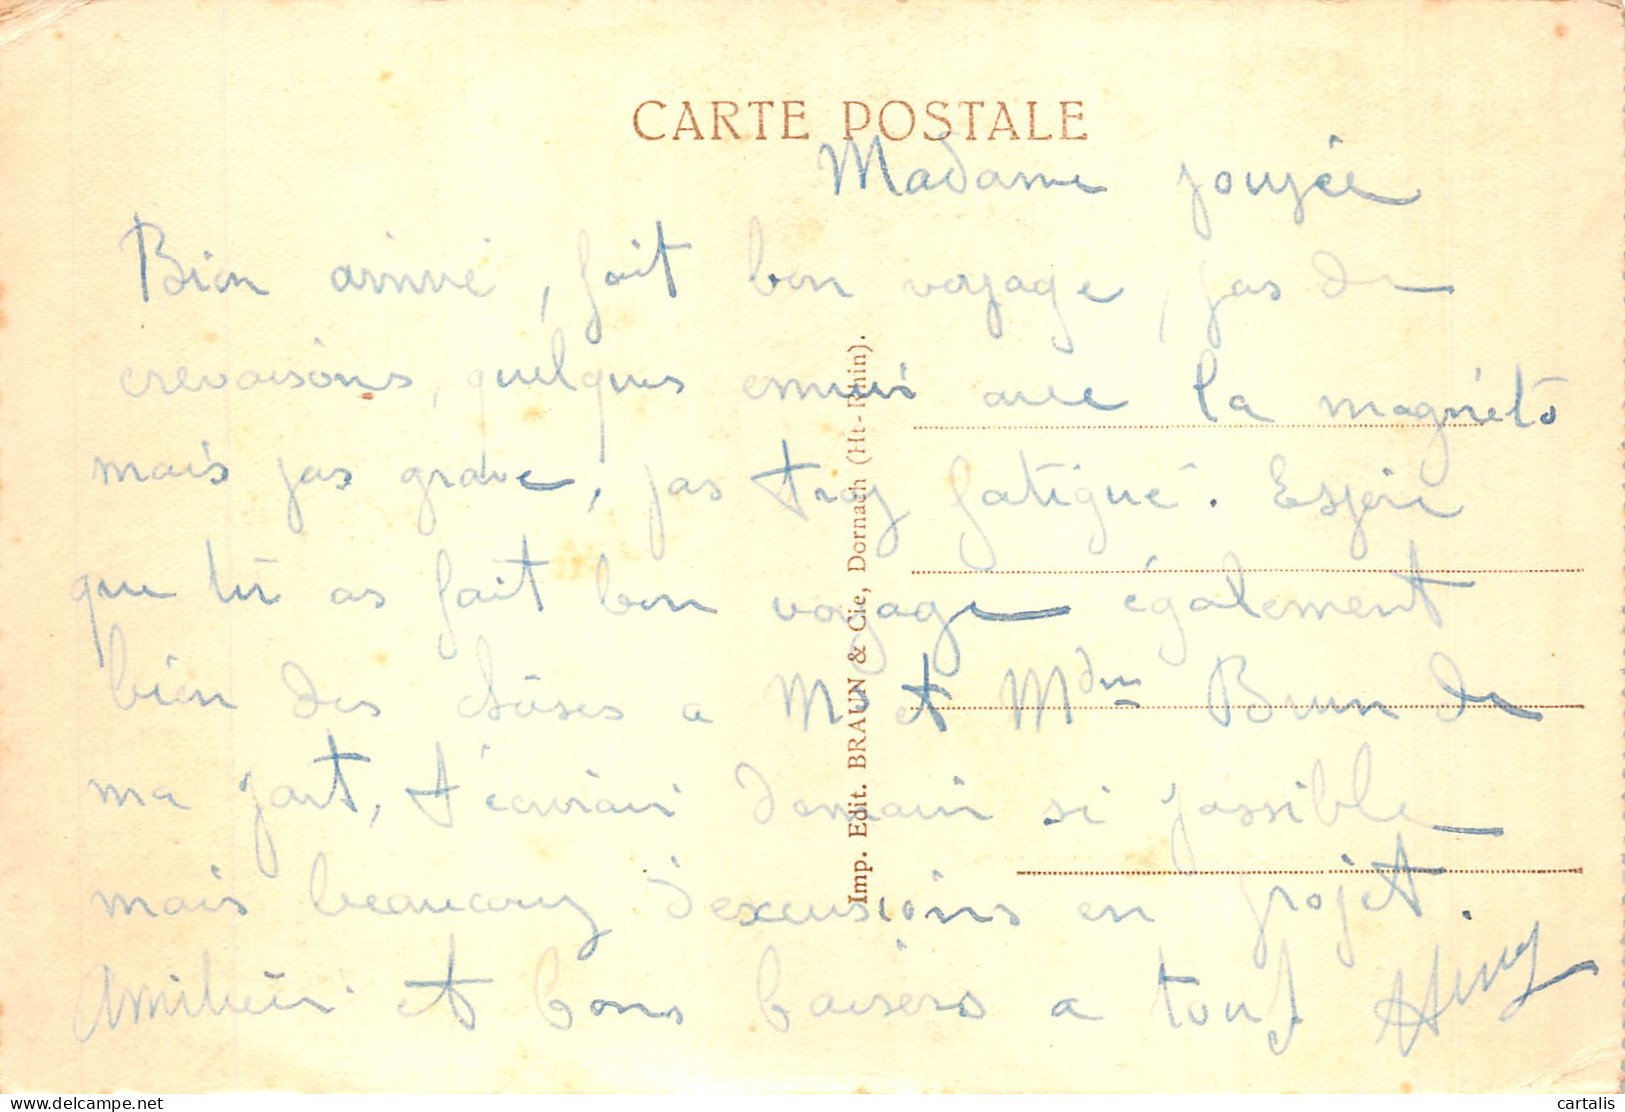 CARTE POSTALE
Madame
Bien arrivé, fait bon voyage, pas de
crevaisons, quelques ennuis avec la magnéto
mais pas grave, pas trop fatigué. Espère
que tu as fait bon voyage également
bien des choses a Mr et Mdme Brun de
ma part, t'écrirai demain si possible
mais beaucoup d'excursions en projet.
Amitiés et bons baisers a tous
Imp. Edit. BRAUN & Cie, Dornach (Ht-Rhin).
cartalis